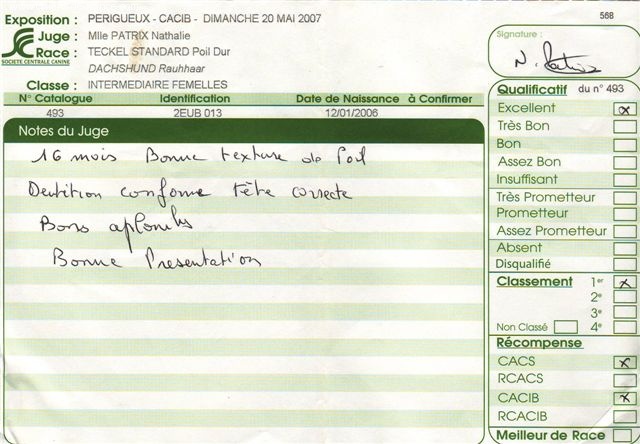 Exposition : PERIGUEUX - CACIB - DIMANCHE 20 MAI 2007
568
Juge : Mlle PATRIX Nathalie
Race : TECKEL STANDARD Poil Dur
SOCIETE CENTRALE CANINE
DACHSHUND Rauhhaar
Classe : INTERMEDIAIRE FEMELLES
N° Catalogue Identification Date de Naissance à Confirmer
493 2EUB 013 12/01/2006
Notes du Juge
16 mois Bonne texture de Poil
Dentition conforme tête correcte
Bons aplombs
Bonne Presentation
Signature :
N. Patrix
Qualificatif du n° 493
Excellent x
Très Bon
Bon
Assez Bon
Insuffisant
Très Prometteur
Prometteur
Assez Prometteur
Absent
Disqualifié
Classement 1er x
2e
3e
Non Classé 4e
Récompense
CACS x
RCACS
CACIB x
RCACIB
Meilleur de Race